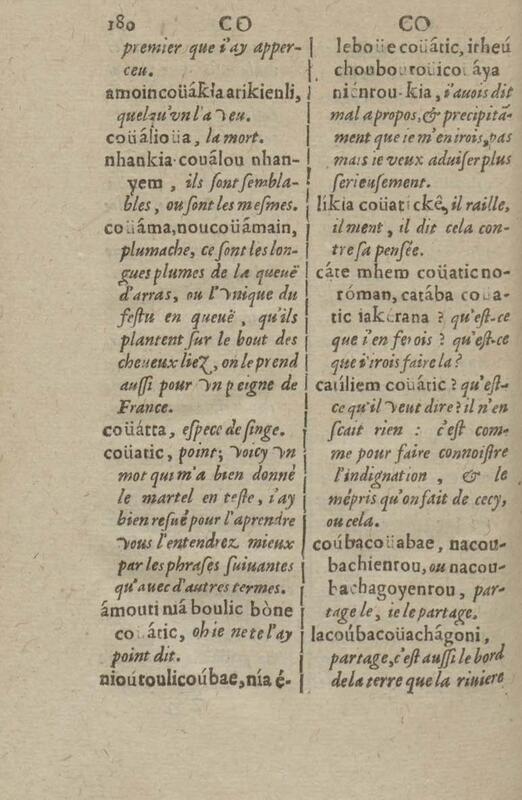 180 CO CO
premier que i'ay apper-
ceu.
amoincoüákia arikienli,
quelqu'vn l'a veu.
coüálioüa, la mort.
nhankia-couálou nhan-
yem, ils sont sembla-
bles, ou sont les mesmes.
coüáma, noucoüámain,
plumache, ce sont les lon-
gues plumes de la queuë
d'arras, ou l'vnique du
festu en queuë, qu'ils
plantent sur le bout des
cheueux liez, on le prend
aussi pour vn peigne de
France.
coüátta, espece de singe.
coüatic, point; voicy vn
mot qui m'a bien donné
le martel en teste, i'ay
bien resué pour l'aprendre
vous l'entendrez mieux
par les phrases suiuantes
qu'auec d'autres termes.
ámouti niá boulic bòne
coüátic, oh ie ne te l'ay
point dit.
nioútoulicoúbae, nía é-
leboüe coüátic, irheú
choubouroüicoüáya
niénrou-kia, i'auois dit
mal a propos, & precipitā-
ment que ie m'en irois, pas
mais ie veux aduiser plus
serieusement.
líkia coüatickê, il raille,
il ment, il dit cela con-
tre sa pensée.
cáte mhem coüatic no-
róman, catába coua-
tic iakerana ? qu'est-ce
que i'en ferois ? qu'est-ce
que i'irois faire la ?
catíliem coüátic ? qu'est-
ce qu'il veut dire ? il n'en
scait rien : c'est com-
me pour faire connoistre
l'indignation, & le
mépris qu'on fait de cecy,
ou cela.
coúbacoüabae, nacou-
bachienrou, ou nacou-
bachagoyenrou, par-
tage le, ie le partage.
lacoúbacoüachágoni,
partage, c'est aussi le bord
de la terre que la riuiere